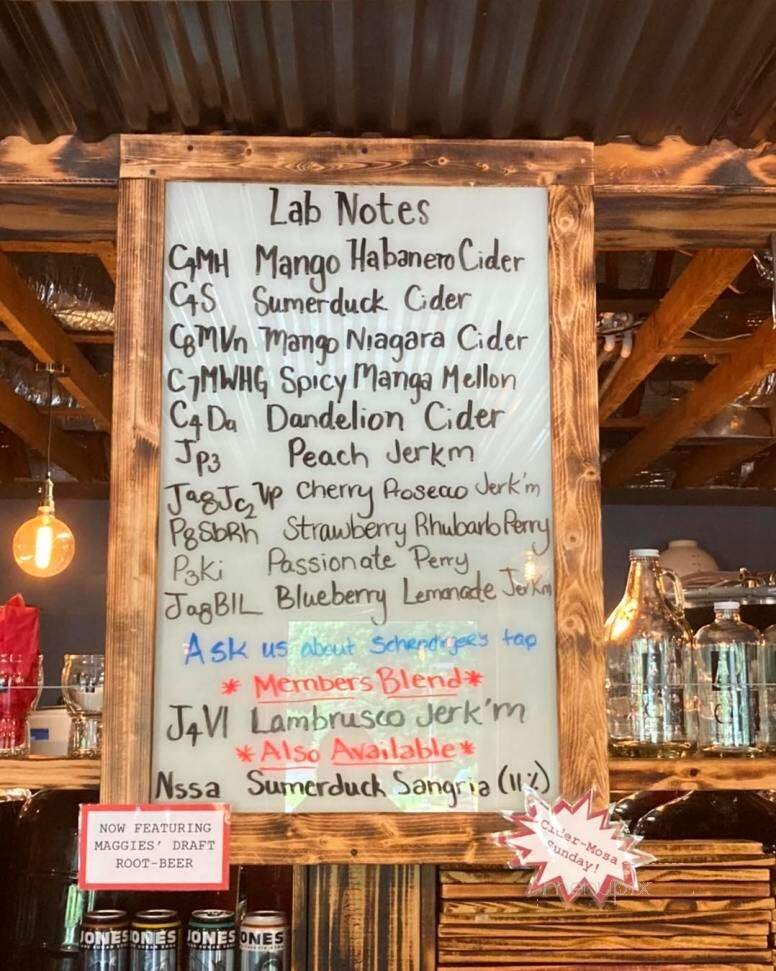 Lab Notes
C4MH Mango Habanero Cider
C4S Sumerduck Cider
C8MVn Mango Niagara Cider
C7MWHG Spicy Manga Mellon
C4Da Dandelion Cider
JP3 Peach Jerkm
Jag8Jc2VP Cherry Prosecco Jerk'm
P8SbRh Strawberry Rhubarb Perry
P3Ki Passionate Perry
Jag8BlL Blueberry Lemonade Jerkm
Ask us about tap
*Members Blend*
J4Vl Lambrusco Jerk'm
*Also Available*
Nssa Sumerduck Sangria (11%)
NOW FEATURING
MAGGIES' DRAFT
ROOT-BEER
Cider-Mosa
Sunday!
JONES JONES JONES JONES